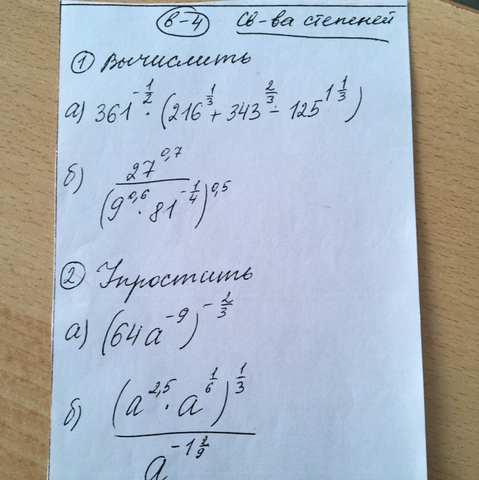 В-4 Св-ва степеней
① Вычислить
а) 361^(-1/2) · (216^(1/3) + 343^(2/3) - 125^(1 1/3))
б) 27^(0,7) / (9^(0,6) · 81^(-1/4))^(0,5)
② Упростить
а) (64a^(-9))^(-2/3)
б) (a^(2,5) · a^(1/6))^(1/3) / a^(-1 2/9)